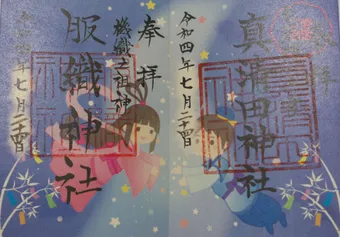 真清田神社
令和四年七月二十四日
奉拝
機織之祖神
服織神社
令和四年七月二十四日